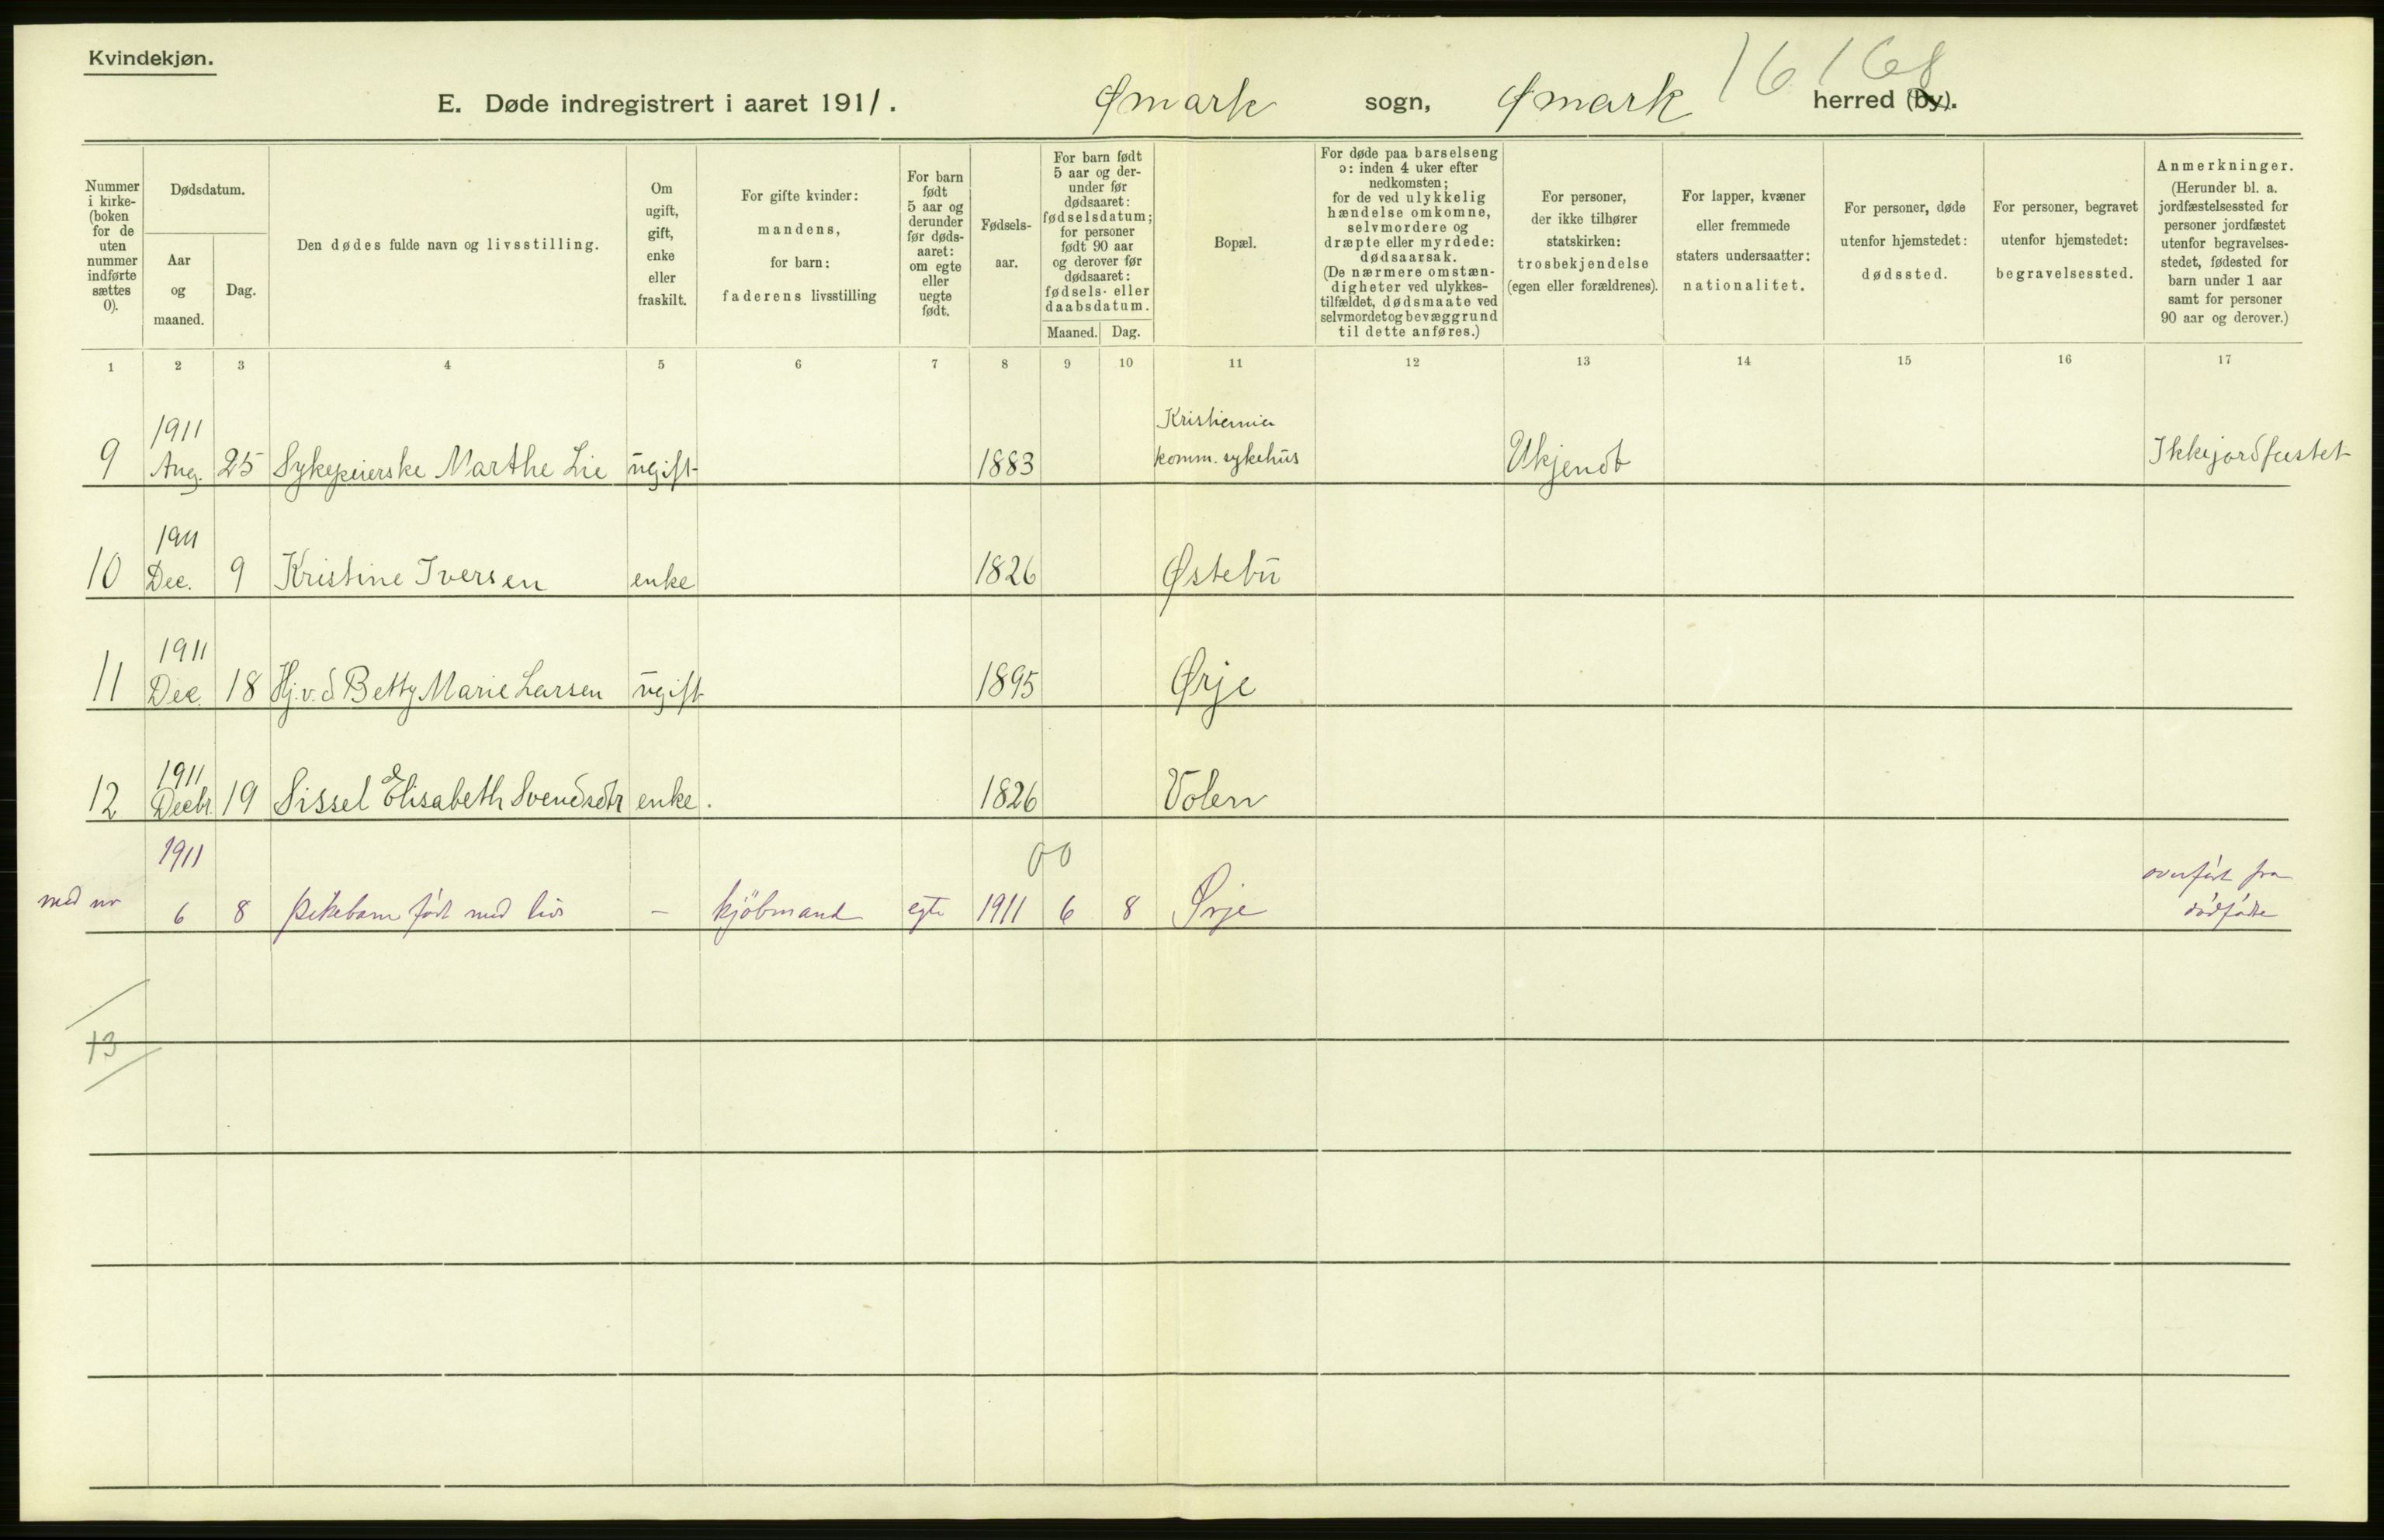 Kvindekjøn.
16168
E. Døde indregistrert i aaret 1911. Ømark sogn, Ømark herred (by).
Nummer i kirke-(boken for de uten nummer indførte sættes 0).
Dødsdatum.
Aar og maaned.
Dag.
Den dødes fulde navn og livsstilling.
Om ugift, gift, enke eller fraskilt.
For gifte kvinder: mandens, for barn: faderens livsstilling
For barn født 5 aar og derunder før døds-aaret: om egte eller uegte født.
Fødsels-aar.
For barn født 5 aar og der-under før dødsaaret: fødselsdatum; for personer født 90 aar og derover før dødsaaret: fødsels- eller daabsdatum.
Maaned. Dag.
Bopæl.
For døde paa barselseng ɔ: inden 4 uker efter nedkomsten; for de ved ulykkelig hændelse omkomne, selvmordere og dræpte eller myrdede: dødsaarsak. (De nærmere omstæn-digheter ved ulykkes-tilfældet, dødsmaate ved selvmordet og bevæggrund til dette anføres.)
For personer, der ikke tilhører statskirken: trosbekjendelse (egen eller forældrenes).
For lapper, kvæner eller fremmede staters undersaatter: nationalitet.
For personer, døde utenfor hjemstedet: dødssted.
For personer, begravet utenfor hjemstedet: begravelsessted.
Anmerkninger. (Herunder bl. a. jordfæstelsessted for personer jordfæstet utenfor begravelses-stedet, fødested for barn under 1 aar samt for personer 90 aar og derover.)
1 2 3 4 5 6 7 8 9 10 11 12 13 14 15 16 17
9 1911 Aug. 25 Sykepleierske Marthe Lie ugift 1883 Kristiania komm. sykehus Ukjendt Ikke jordfæstet
10 1911 Dec. 9 Kristine Iversen enke 1826 Østebu
11 1911 Dec. 18 Hj.v.d Betty Marie Larsen ugift 1895 Ørje
12 1911 Decbr. 19 Sissel Elisabeth Svendsdtr enke. 1826 Volen
00
med nr 1911 6 8 pikebarn født med liv — kjøbmand egte 1911 6 8 Ørje overført fra dødfødte
13